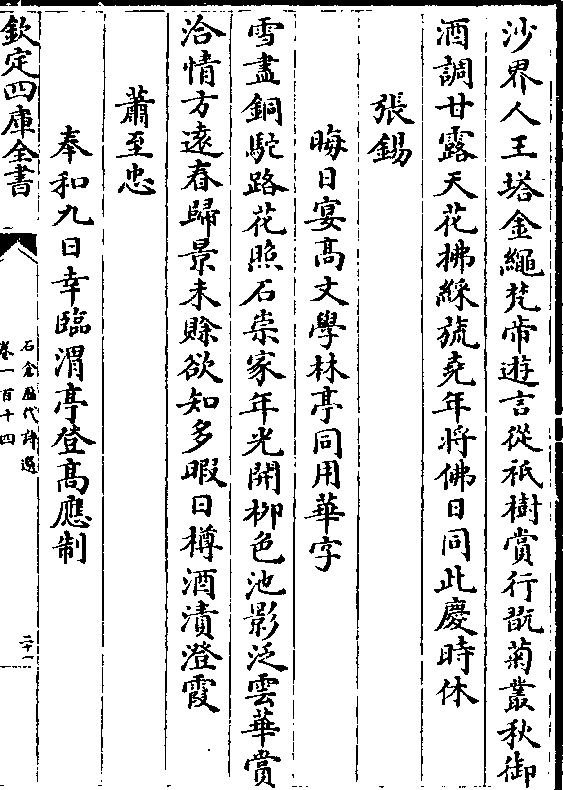 沙界人王塔金繩梵帝遊言從祇樹賞行翫菊叢秋御
酒調甘露天花拂綵旒堯年將佛日同此慶時休
張錫
晦日宴高文學林亭同用華字
雪盡銅駝路花照石崇家年光開栁色池影泛雲華賞
洽情方遠春歸景未賒欲知多暇日樽酒漬澄霞
蕭至忠
奉和九日幸臨渭亭登高應制
欽定四庫全書
石倉歷代詩選
卷一百十四
二十一